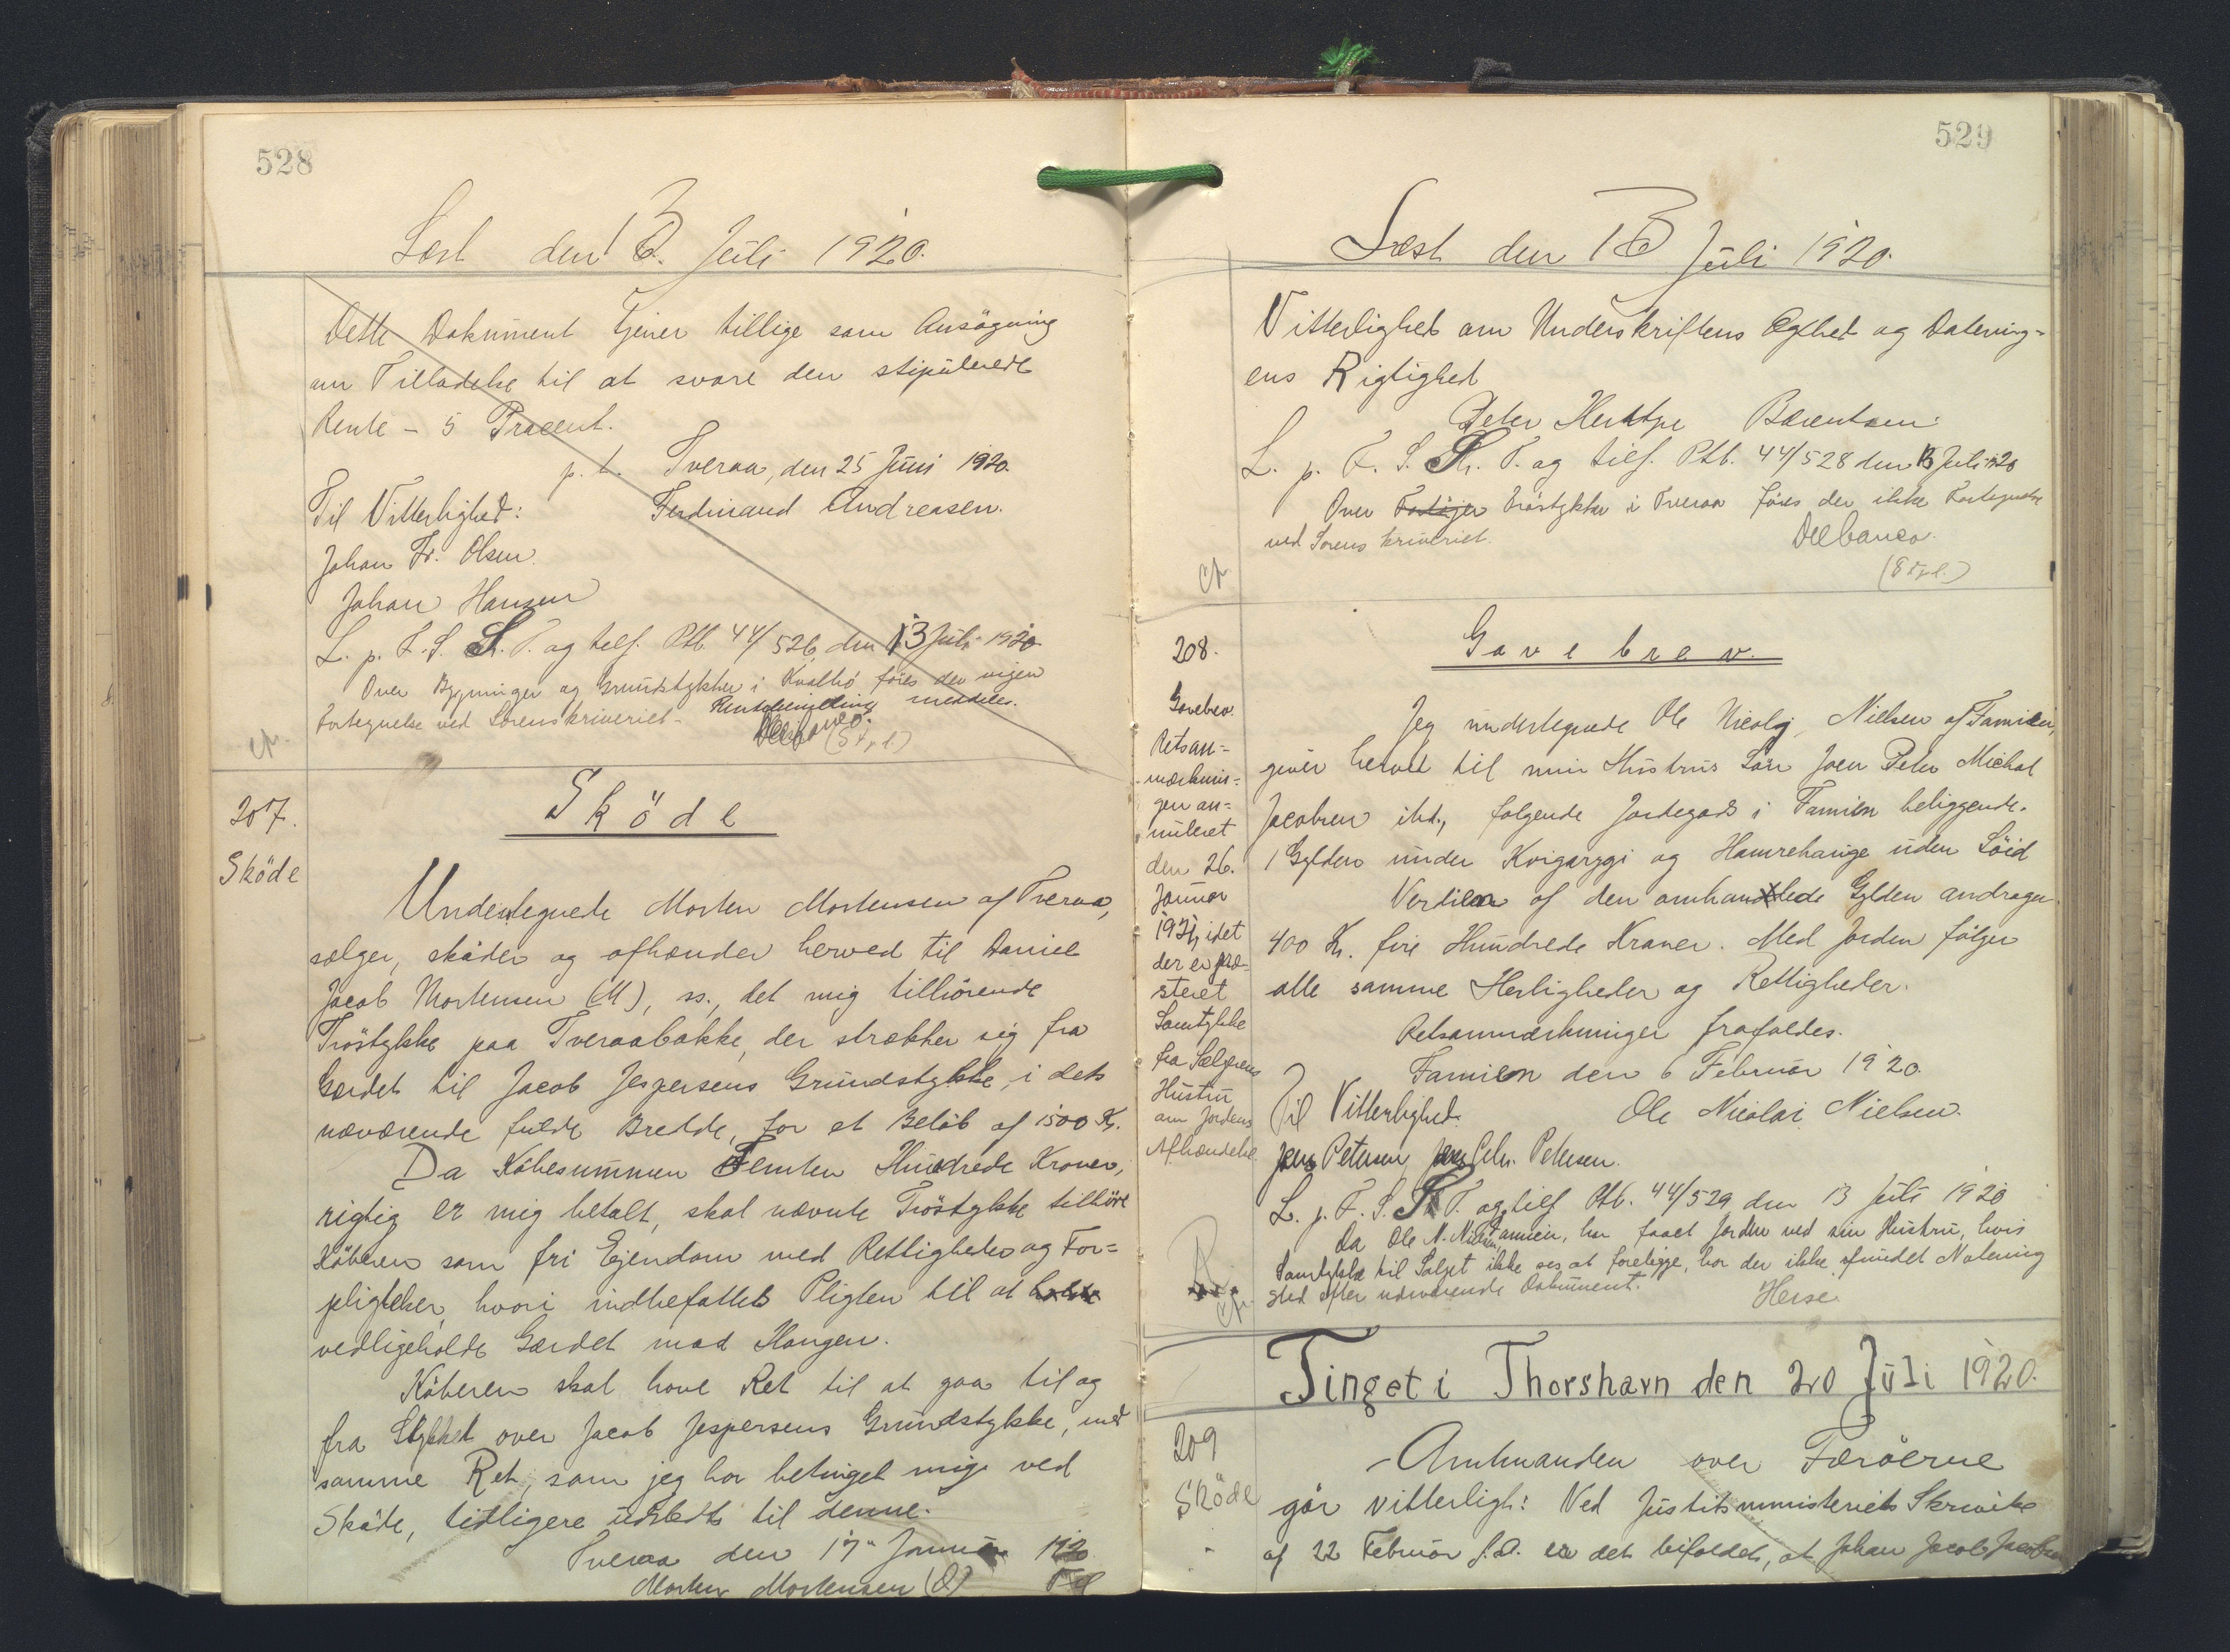 528
Læst den 13. Juli 1920.
Dette Dokument tjener tillige som Ansögning
om Tilladelse til at svare den stipulerede
Rente – 5 Procent.
p. t. Tveraa, den 25 Juni 1920.
Til Vitterlighed: Ferdinand Andreasen.
Johan Fr. Olsen.
Johan Hansen
L. p. F. S. Sk. T. og tilf. Ptb. 44/526, den 13 Juli 1920
Over Bygninger og Grundstykker i Kvalbö föres der ingen
Fortegnelse ved Sorenskriveriet –
Delbanco. (5 Kr.)
207.
Sköde
Sköde
Undertegnede Morten Mortensen af Tveraa,
sælger, sköder og afhænder herved til Daniel
Jacob Mortensen (M), ss., det mig tilhörende
Tröstykke paa Tveraabakke, der strækker sig fra
Gærdet til Jacob Jespersens Grundstykke, i dets
nuværende fulde Bredde, for et Belöb af 1500 Kr.
Da Köbesummen Femten Hundrede Kroner,
rigtig er mig betalt, skal nævnte Tröstykke tilhöre
Köberen som fri Ejendom med Rettigheder og For=
pligtelser, hvori indbefattet Pligten til at
vedligeholde Gærdet mod Haugen.
Köberen skal have Ret til at gaa til og
fra Stykket over Jacob Jespersens Grundstykke, med
samme Ret, som jeg har betinget mig ved
Sköde, tidligere udstedt til denne.
Tveraa den 17. Januar 1920
Morten Mortensen (D) Til
529
Læst den 13 Juli 1920.
Vitterlighed om Underskriftens Ægthed og Datering=
ens Rigtighed
Peter Hentze Bærentsen
L. p. F. S. Sk. T. og tilf. Ptb. 44/528 den 13 Juli 1920
Over Tröstykker i Tveraa föres der ikke Fortegnelse
ved Sorenskriveriet. Delbanco.
208.
Gavebrev.
Retsan=
mærknin=
gen an=
nuleret
den 26.
Januar
1921, idet
der er præ=
steret
Samtykke
fra Sælgerens
Hustru
om Jordens
Afhændelse
Gavebrev.
Jeg undertegnede Ole Nicolaj Nielsen af Famien,
giver herved til min Hustrus Sön Joen Peter Michal
Jacobsen ibd., fölgende Jordegods i Famien beliggende.
1 Gylden under Kvigaryggi og Hamrehauge uden Söid
Verdien af den omhandlede Gylden andrager
400 Kr. fire Hundrede Kroner. Med Jorden fölger
alle samme Herligheder og Rettigheder.
Retsanmærkninger frafaldes.
Famien den 6 Februar 1920.
Til Vitterlighed. Ole Nicolai Nielsen.
Jens Petersen, Jens Chr. Petersen.
L. p. F. S. Sk. T. og tilf. Ptb. 44/529 den 13 Juli 1920
Da Ole N. Nielsen, Famien, har faaet Jorden ved sin Hustru, hvis
Samtykke til Salget ikke ses at foreligge, har der ikke fundet Notering
sted efter nærværende Dokument. Heise
Tinget i Thorshavn den 20 Juli 1920.
209
Sköde
– Amtmanden over Færöerne
gör vitterligt: Ved Justitsministeriets Skrivelse
af 22 Februar f.A. er det bifaldet, at Johan Jacob Jacobsen